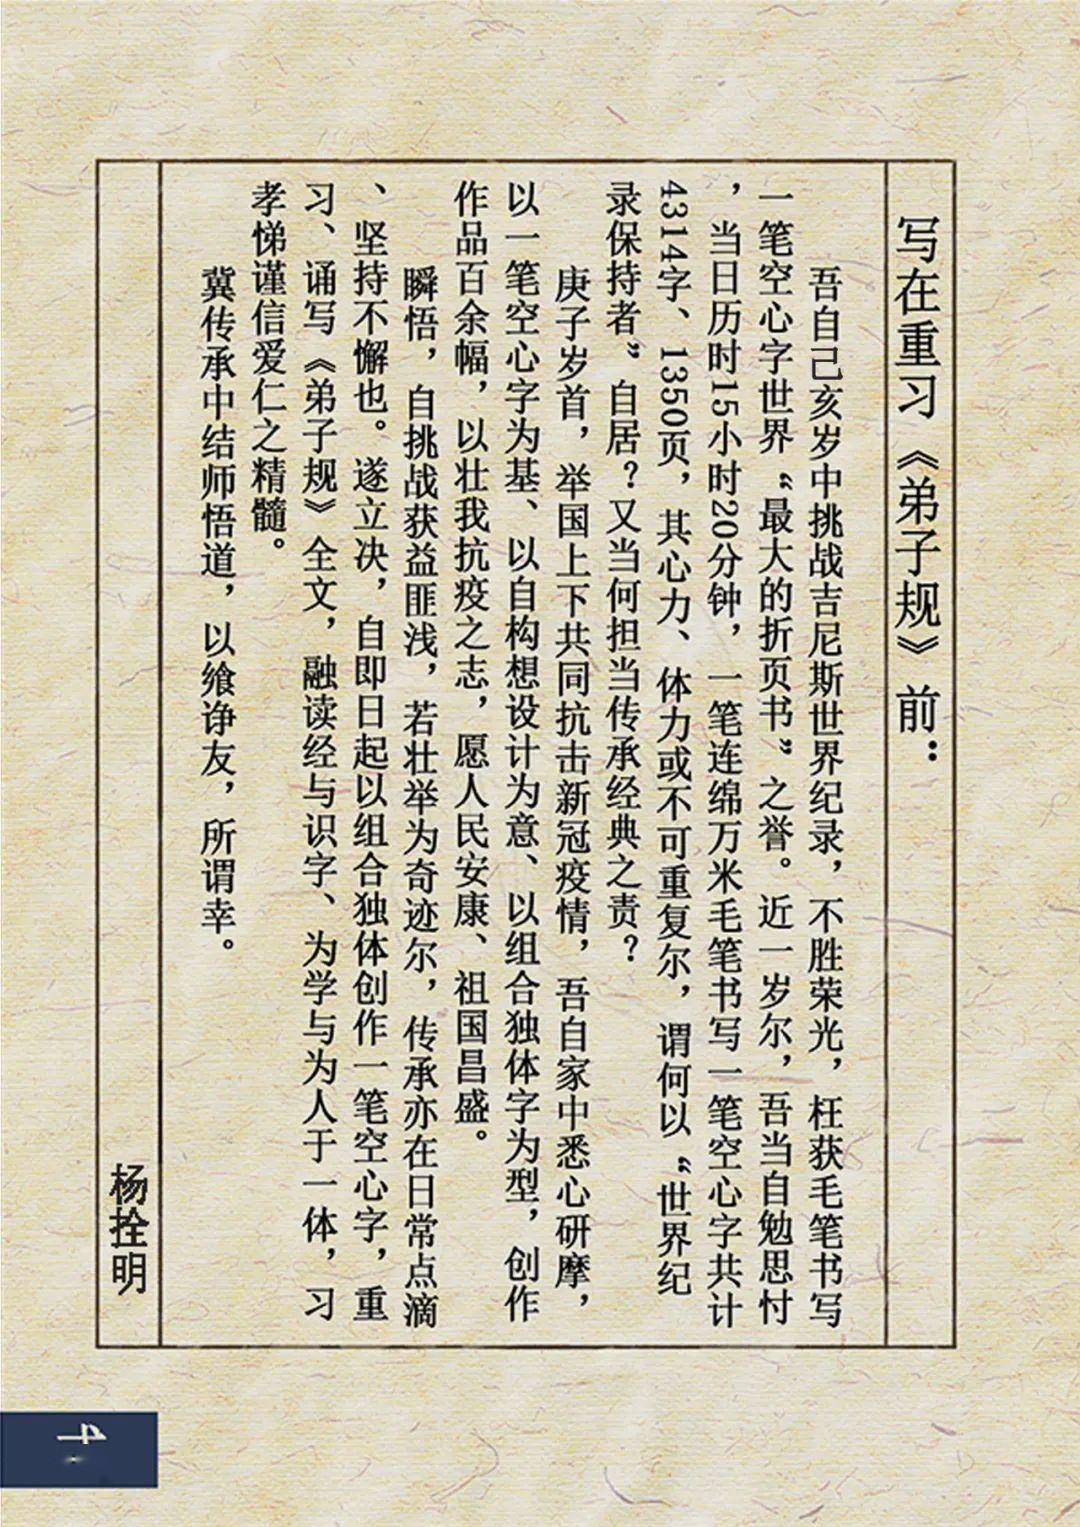 写在重习《弟子规》前：
吾自己亥岁中挑战吉尼斯世界纪录，不胜荣光，枉获毛笔书写
一笔空心字世界“最大的折页书”之誉。近一岁尔，吾当自勉思忖
，当日历时15小时20分钟，一笔连绵万米毛笔书写一笔空心字共计
4314字、1350页，其心力、体力或不可重复尔，谓何以“世界纪
录保持者”自居？又当何担当传承经典之责？
庚子岁首，举国上下共同抗击新冠疫情，吾自家中悉心研摩，
以一笔空心字为基、以自构想设计为意、以组合独体字为型，创作
作品百余幅，以壮我抗疫之志，愿人民安康、祖国昌盛。
瞬悟，自挑战获益匪浅，若壮举为奇迹尔，传承亦在日常点滴
、坚持不懈也。遂立决，自即日起以组合独体创作一笔空心字，重
习、诵写《弟子规》全文，融读经与识字、为学与为人于一体，习
孝悌谨信爱仁之精髓。
冀传承中结师悟道，以飨诤友，所谓幸。
杨拴明